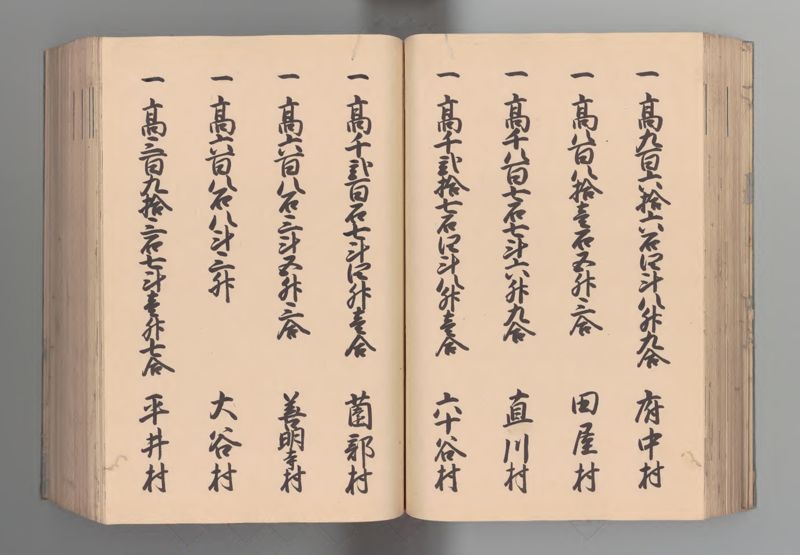 一 高九百六拾六石四斗八升九合 府中村
一 高八百八拾壱石五升三合 田屋村
一 高千八百七石七斗六升九合 直川村
一 高千弐拾七石四斗八升壱合 六十谷村
一 高千弐百石七斗四升壱合 薗部村
一 高六百八石三斗五升三合 善明寺村
一 高六百八石八斗三升 大谷村
一 高三百九拾三石七斗壱升七合 平井村